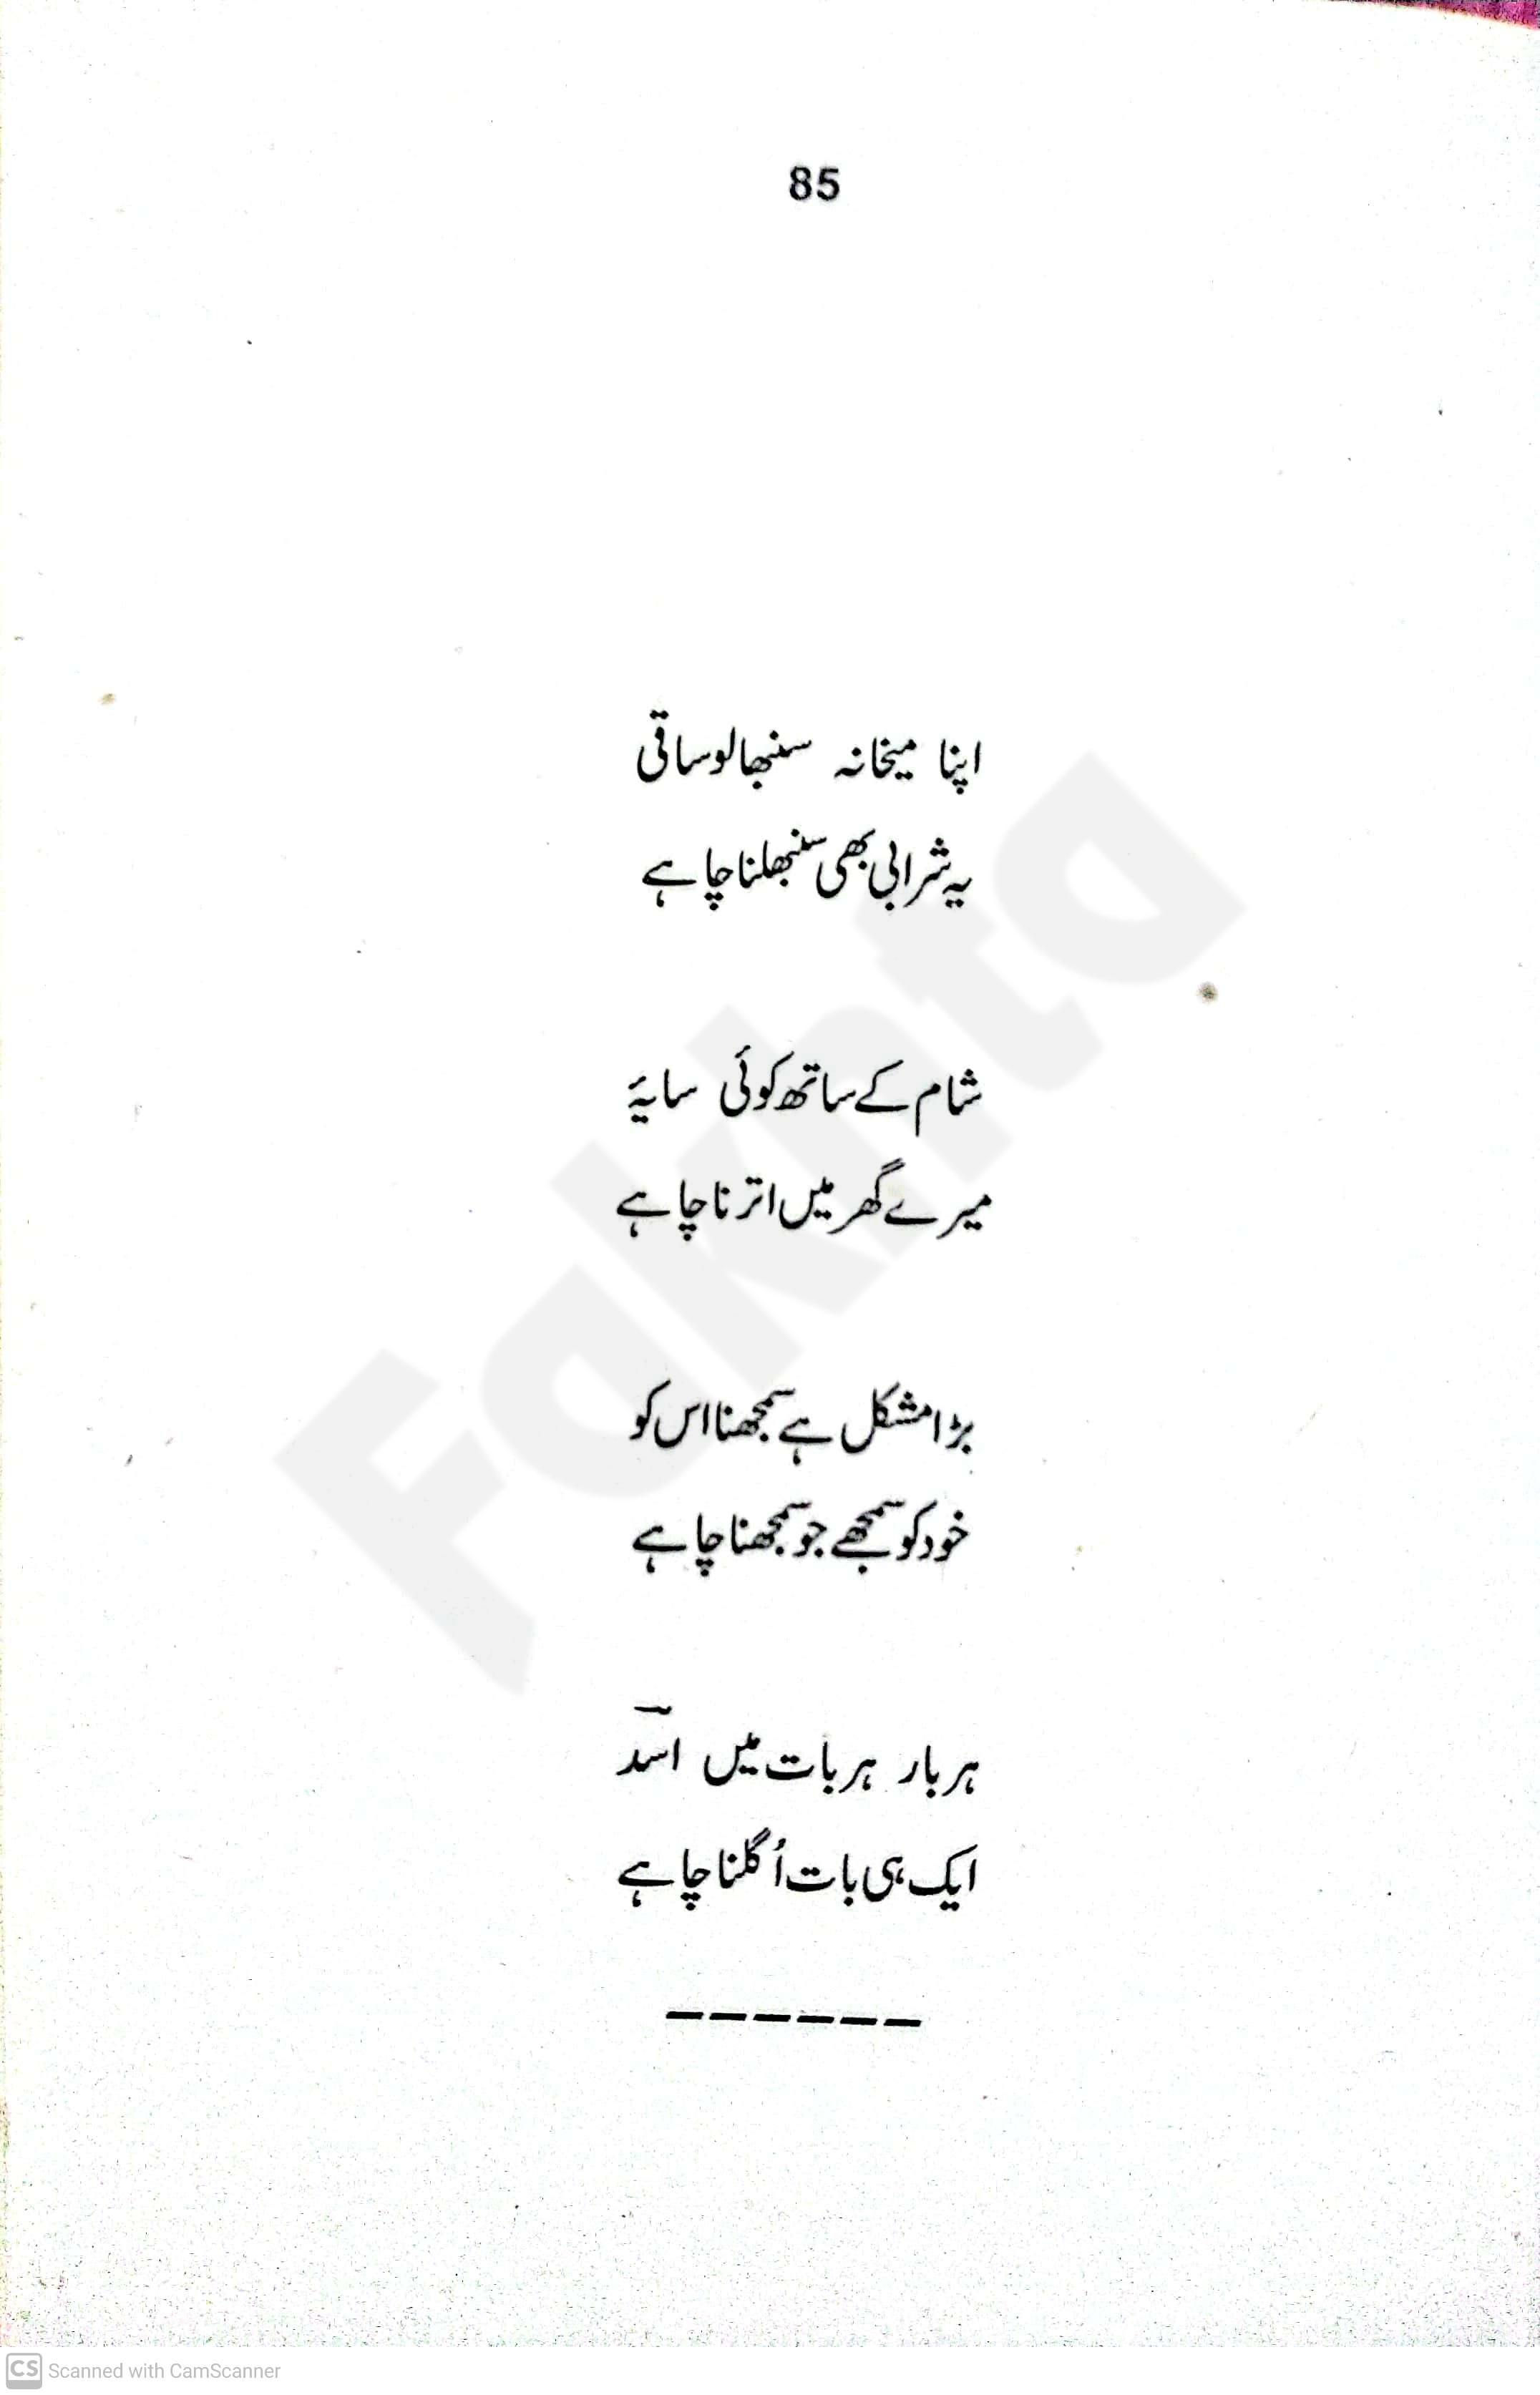 85
اپنا میخانہ سنبھالو ساقی
یہ شرابی بھی سنبھلنا چاہے
شام کے ساتھ کوئی سایۂ
میرے گھر میں اترنا چاہے
بڑا مشکل ہے سمجھنا اس کو
خود کو سمجھے جو سمجھنا چاہے
ہر بار ہر بات میں اسدؔ
ایک ہی بات اُگلنا چاہے
------
Fakhta
CS Scanned with CamScanner